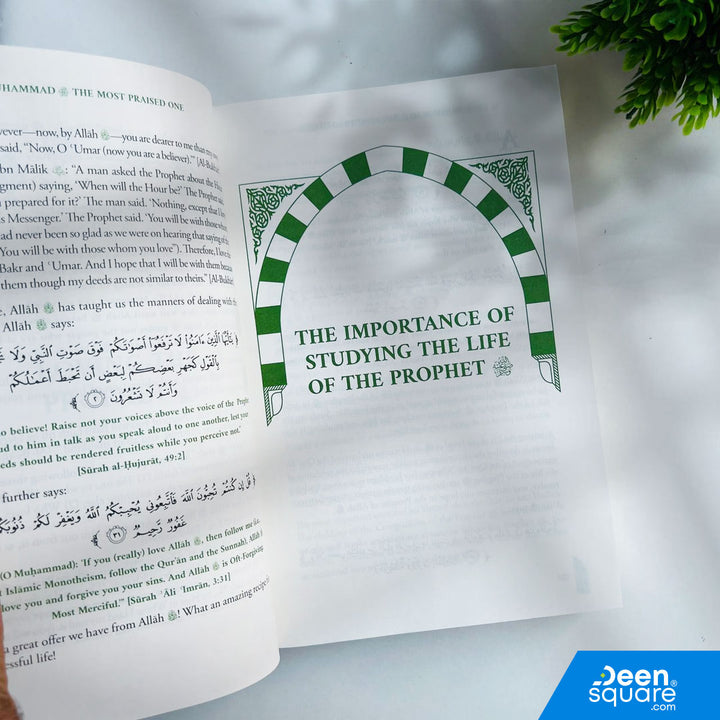 UHAMMAD ﷺ THE MOST PRAISED ONE
ever—now, by Allāh —you are dearer to me than my own
said, “Now, O ʿUmar (now you are a believer).” [Al-Bukhārī]
bn Mālik : “A man asked the Prophet about the Hour
gment) saying, ‘When will the Hour be?’ The Prophet said,
prepared for it?’ The man said. ‘Nothing, except that I love
s Messenger.’ The Prophet said. ‘You will be with those whom
ad never been so glad as we were on hearing that saying of the
You will be with those whom you love”). Therefore, I love the
Bakr and ʿUmar. And I hope that I will be with them because
them though my deeds are not similar to theirs.” [Al-Bukhārī]
, Allāh has taught us the manners of dealing with the
Allāh says:
﴿ يَٰٓأَيُّهَا ٱلَّذِينَ ءَامَنُوا۟ لَا تَرْفَعُوٓا۟ أَصْوَٰتَكُمْ فَوْقَ صَوْتِ ٱلنَّبِىِّ وَلَا
بِٱلْقَوْلِ كَجَهْرِ بَعْضِكُمْ لِبَعْضٍ أَن تَحْبَطَ أَعْمَٰلُكُمْ
وَأَنتُمْ لَا تَشْعُرُونَ ٢ ﴾
o believe! Raise not your voices above the voice of the Prophet
ud to him in talk as you speak aloud to one another, lest your
eeds should be rendered fruitless while you perceive not.’
[Sūrah al-Ḥujurāt, 49:2]
further says:
﴿ قُلْ إِن كُنتُمْ تُحِبُّونَ ٱللَّهَ فَٱتَّبِعُونِى يُحْبِبْكُمُ ٱللَّهُ وَيَغْفِرْ لَكُمْ ذُنُوبَكُمْ
غَفُورٌ رَّحِيمٌ ٣١ ﴾
(O Muḥammad): ‘If you (really) love Allāh , then follow me (i.e.
t Islāmic Monotheism, follow the Qurʾān and the Sunnah), Allāh
love you and forgive you your sins. And Allāh is Oft-Forgiving
Most Merciful.” [Sūrah ʾĀli ʿImrān, 3:31]
a great offer we have from Allāh ! What an amazing recipe
essful life!
THE IMPORTANCE OF
STUDYING THE LIFE
OF THE PROPHET ﷺ
Deen
square®
.com